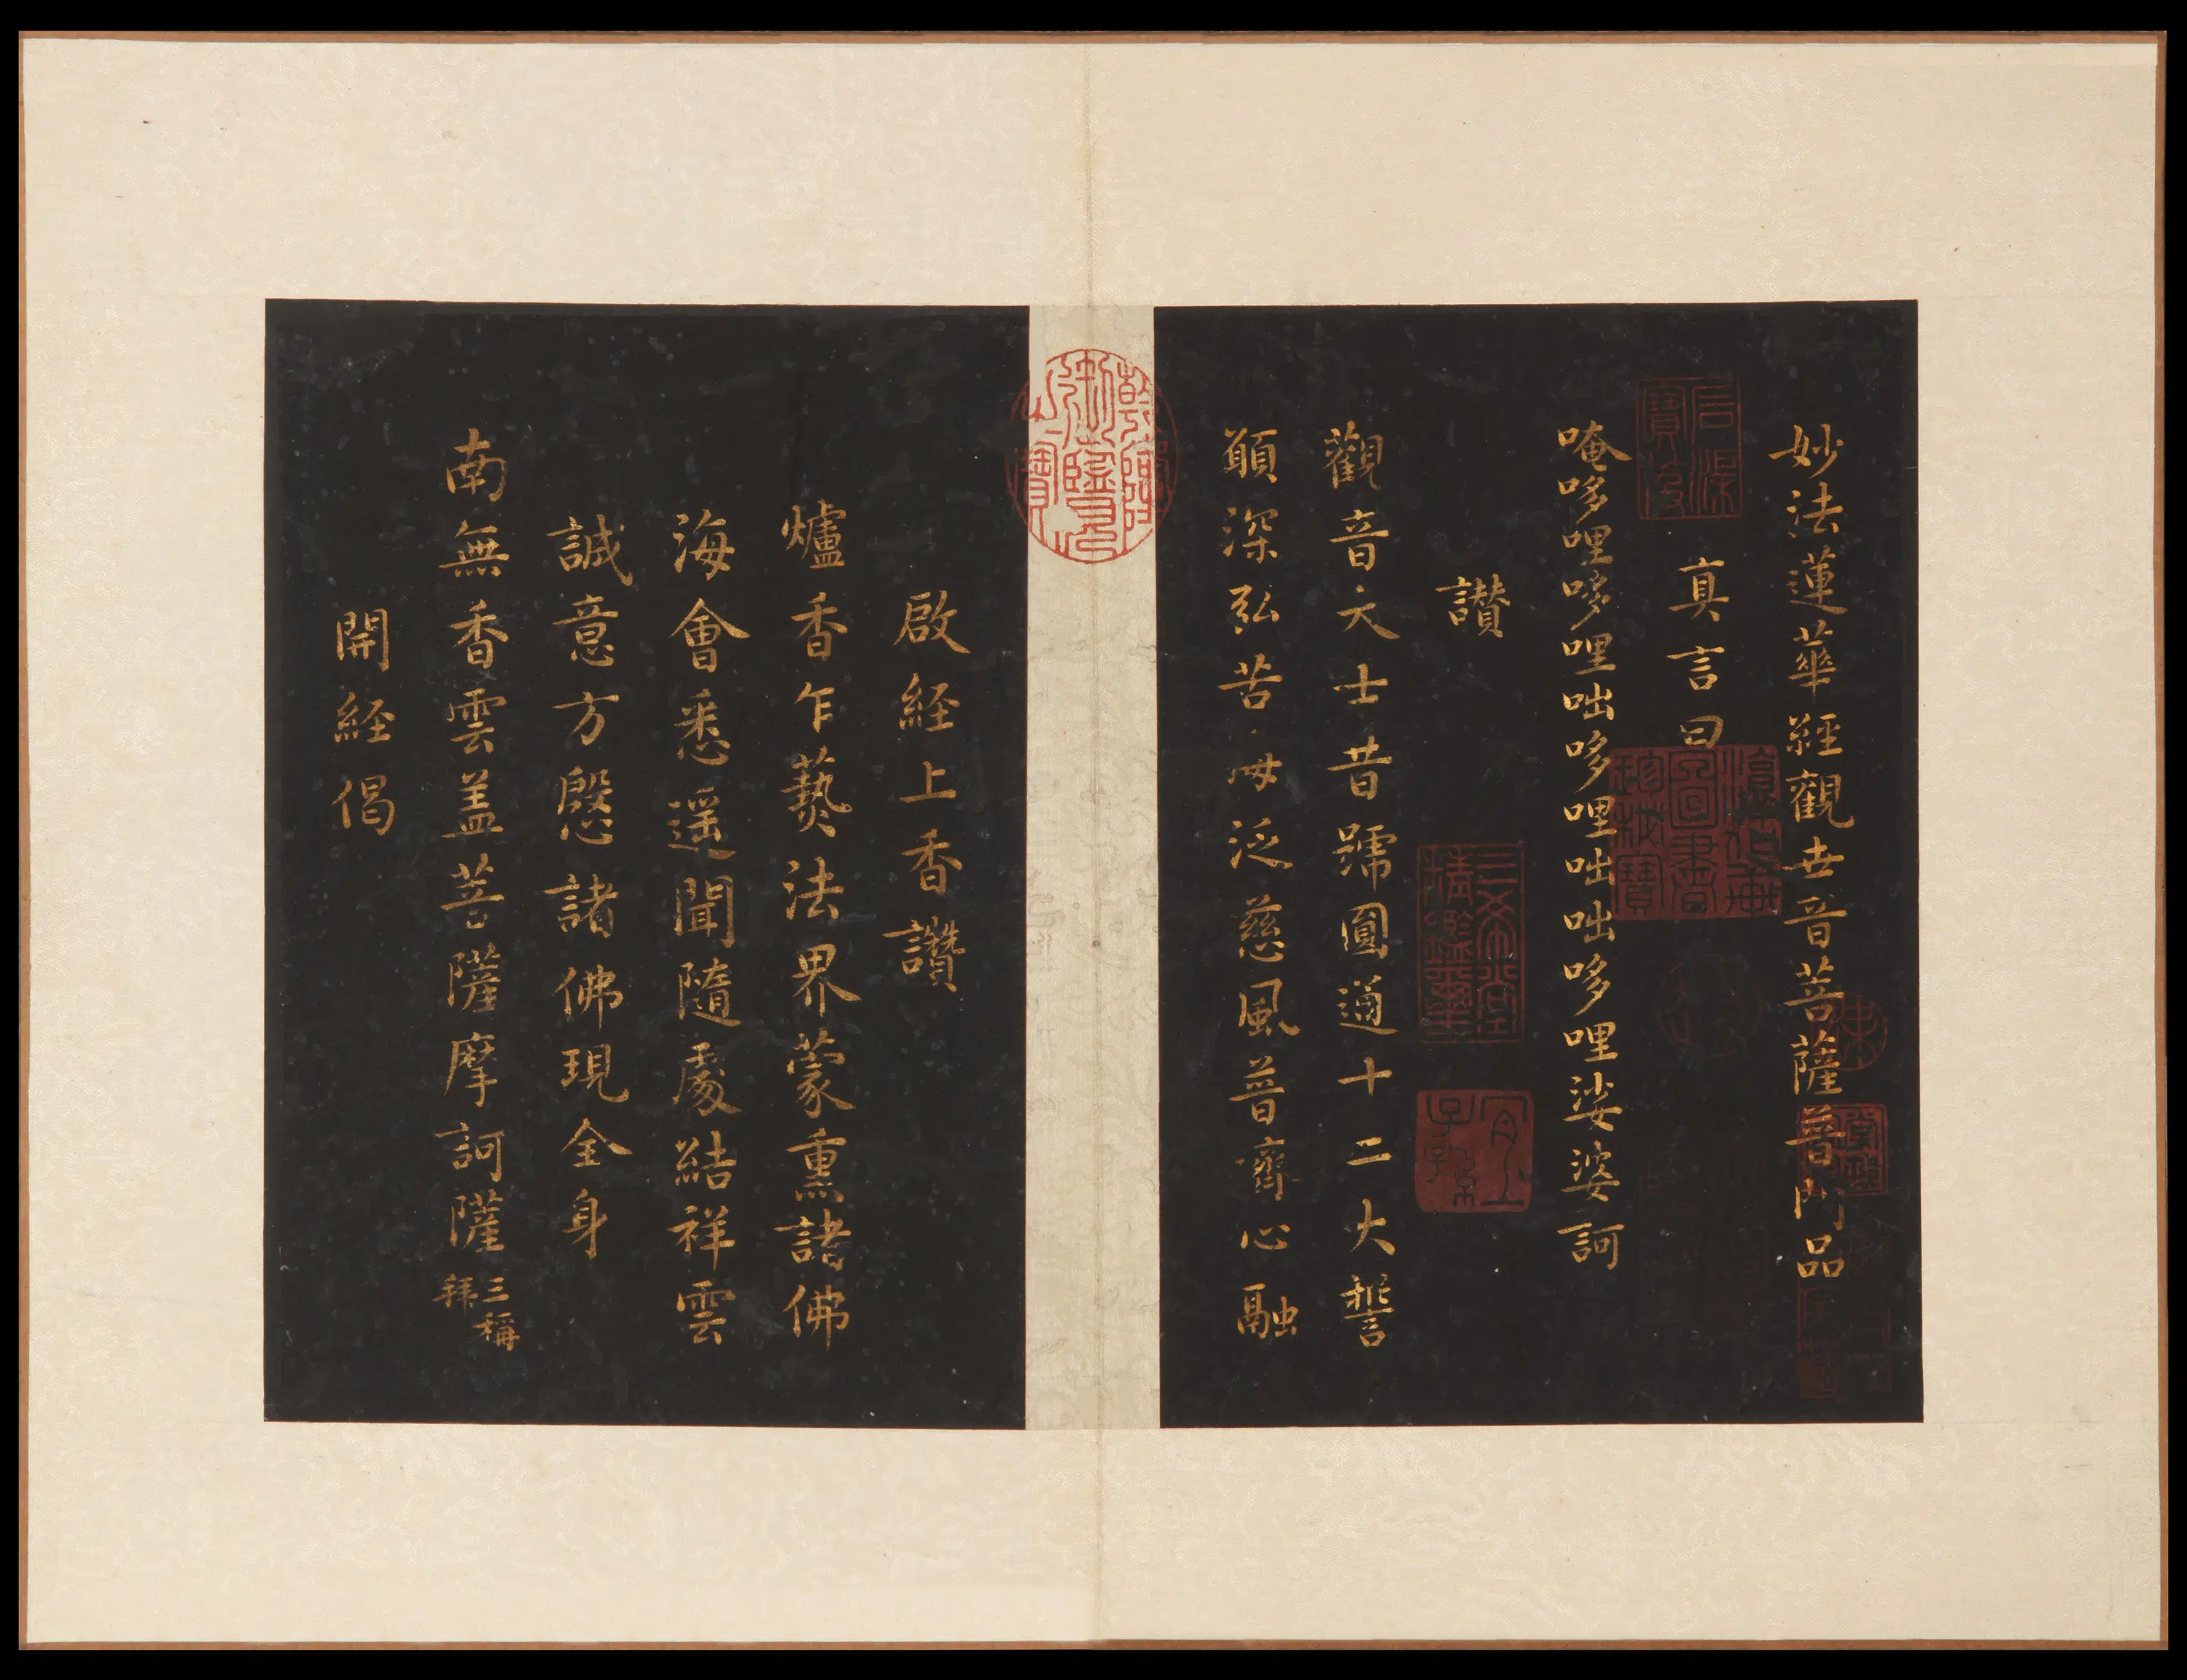 妙法蓮華經觀世音菩薩普門品
真言曰
唵哆哩哆哩咄哆哩咄咄哆哩娑婆訶
讚
觀音大士昔號圓通十二大誓
願深弘苦海泛慈風普齊心融
啟経上香讚
爐香乍爇法界蒙熏諸佛
海會悉遥聞隨處結祥雲
誠意方慇諸佛現全身
南無香雲盖菩薩摩訶薩三稱拜
開経偈
三希堂精鑑璽
宜子孫